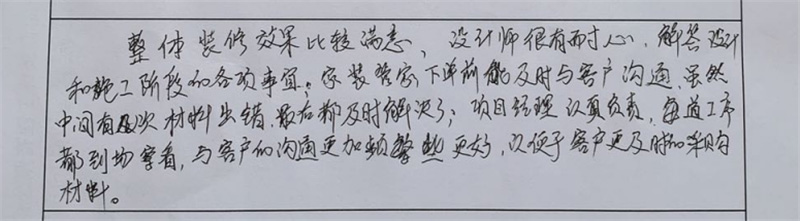 整体装修效果比较满意，设计师很有耐心，解答设计
和施工阶段的各项事宜；家装管家下单前能及时与客户沟通，虽然
中间有几次材料出错，最后都及时解决了；项目经理认真负责，每道工序
都到场察看，与客户的沟通更加频繁些更好，以便于客户更及时的采购
材料。